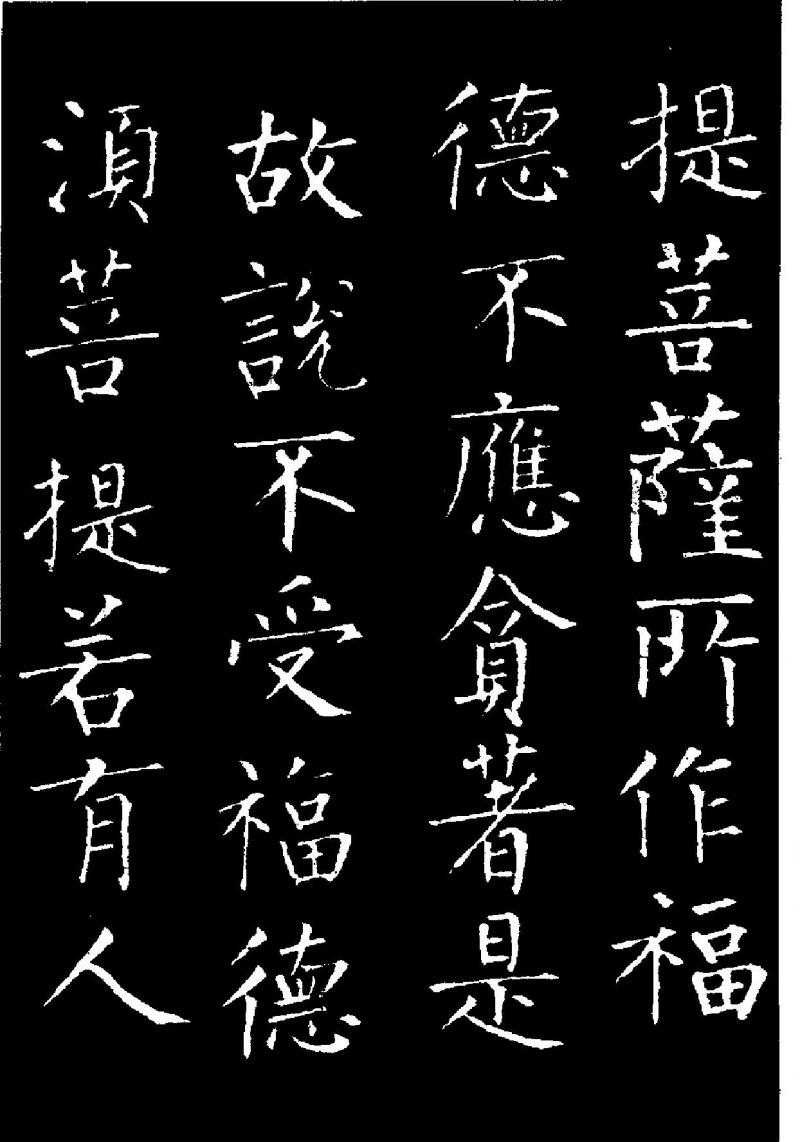 提菩薩所作福
德不應貪著是
故說不受福德
須菩提若有人